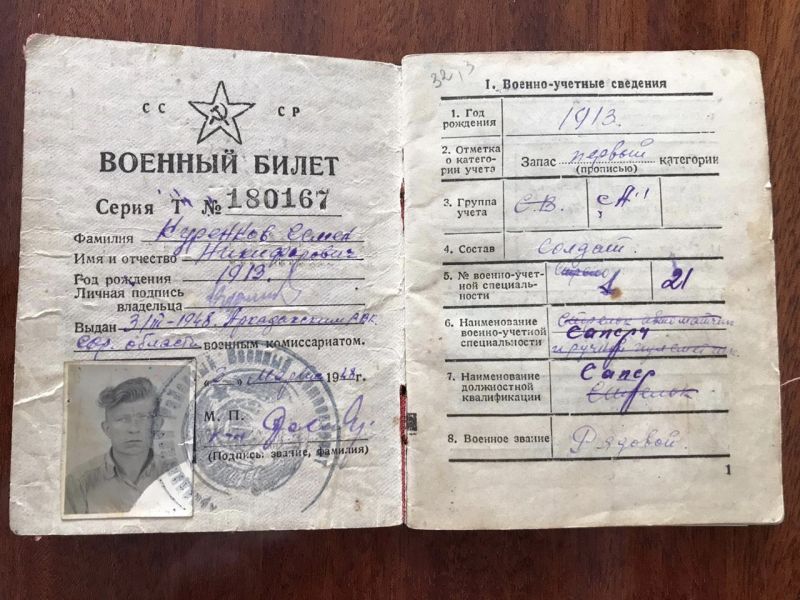 СС СР
ВОЕННЫЙ БИЛЕТ
Серия Т № 180167
Фамилия Куренков Семен
Имя и отчество Никифорович
Год рождения 1913
Личная подпись
владельца
Выдан 3/III-1948. Аркадакским РВК
Сар. области военным комиссариатом.
марта 1948 г.
М. П.
(Подпись: звание, фамилия)
32,3
I. Военно-учетные сведения
1. Год рождения 1913.
2. Отметка о катего-
рии учета Запас первый категории
(прописью)
3. Группа
учета С.В. "СА"
4. Состав Солдат.
5. № военно-учет-
ной специаль-
ности 1 21
6. Наименование
военно-учетной
специальности Стрелок автоматчик
Саперы
и ручной
7. Наименование
должностной
квалификации Сапер
Стрелок
8. Военное звание Рядовой.
1